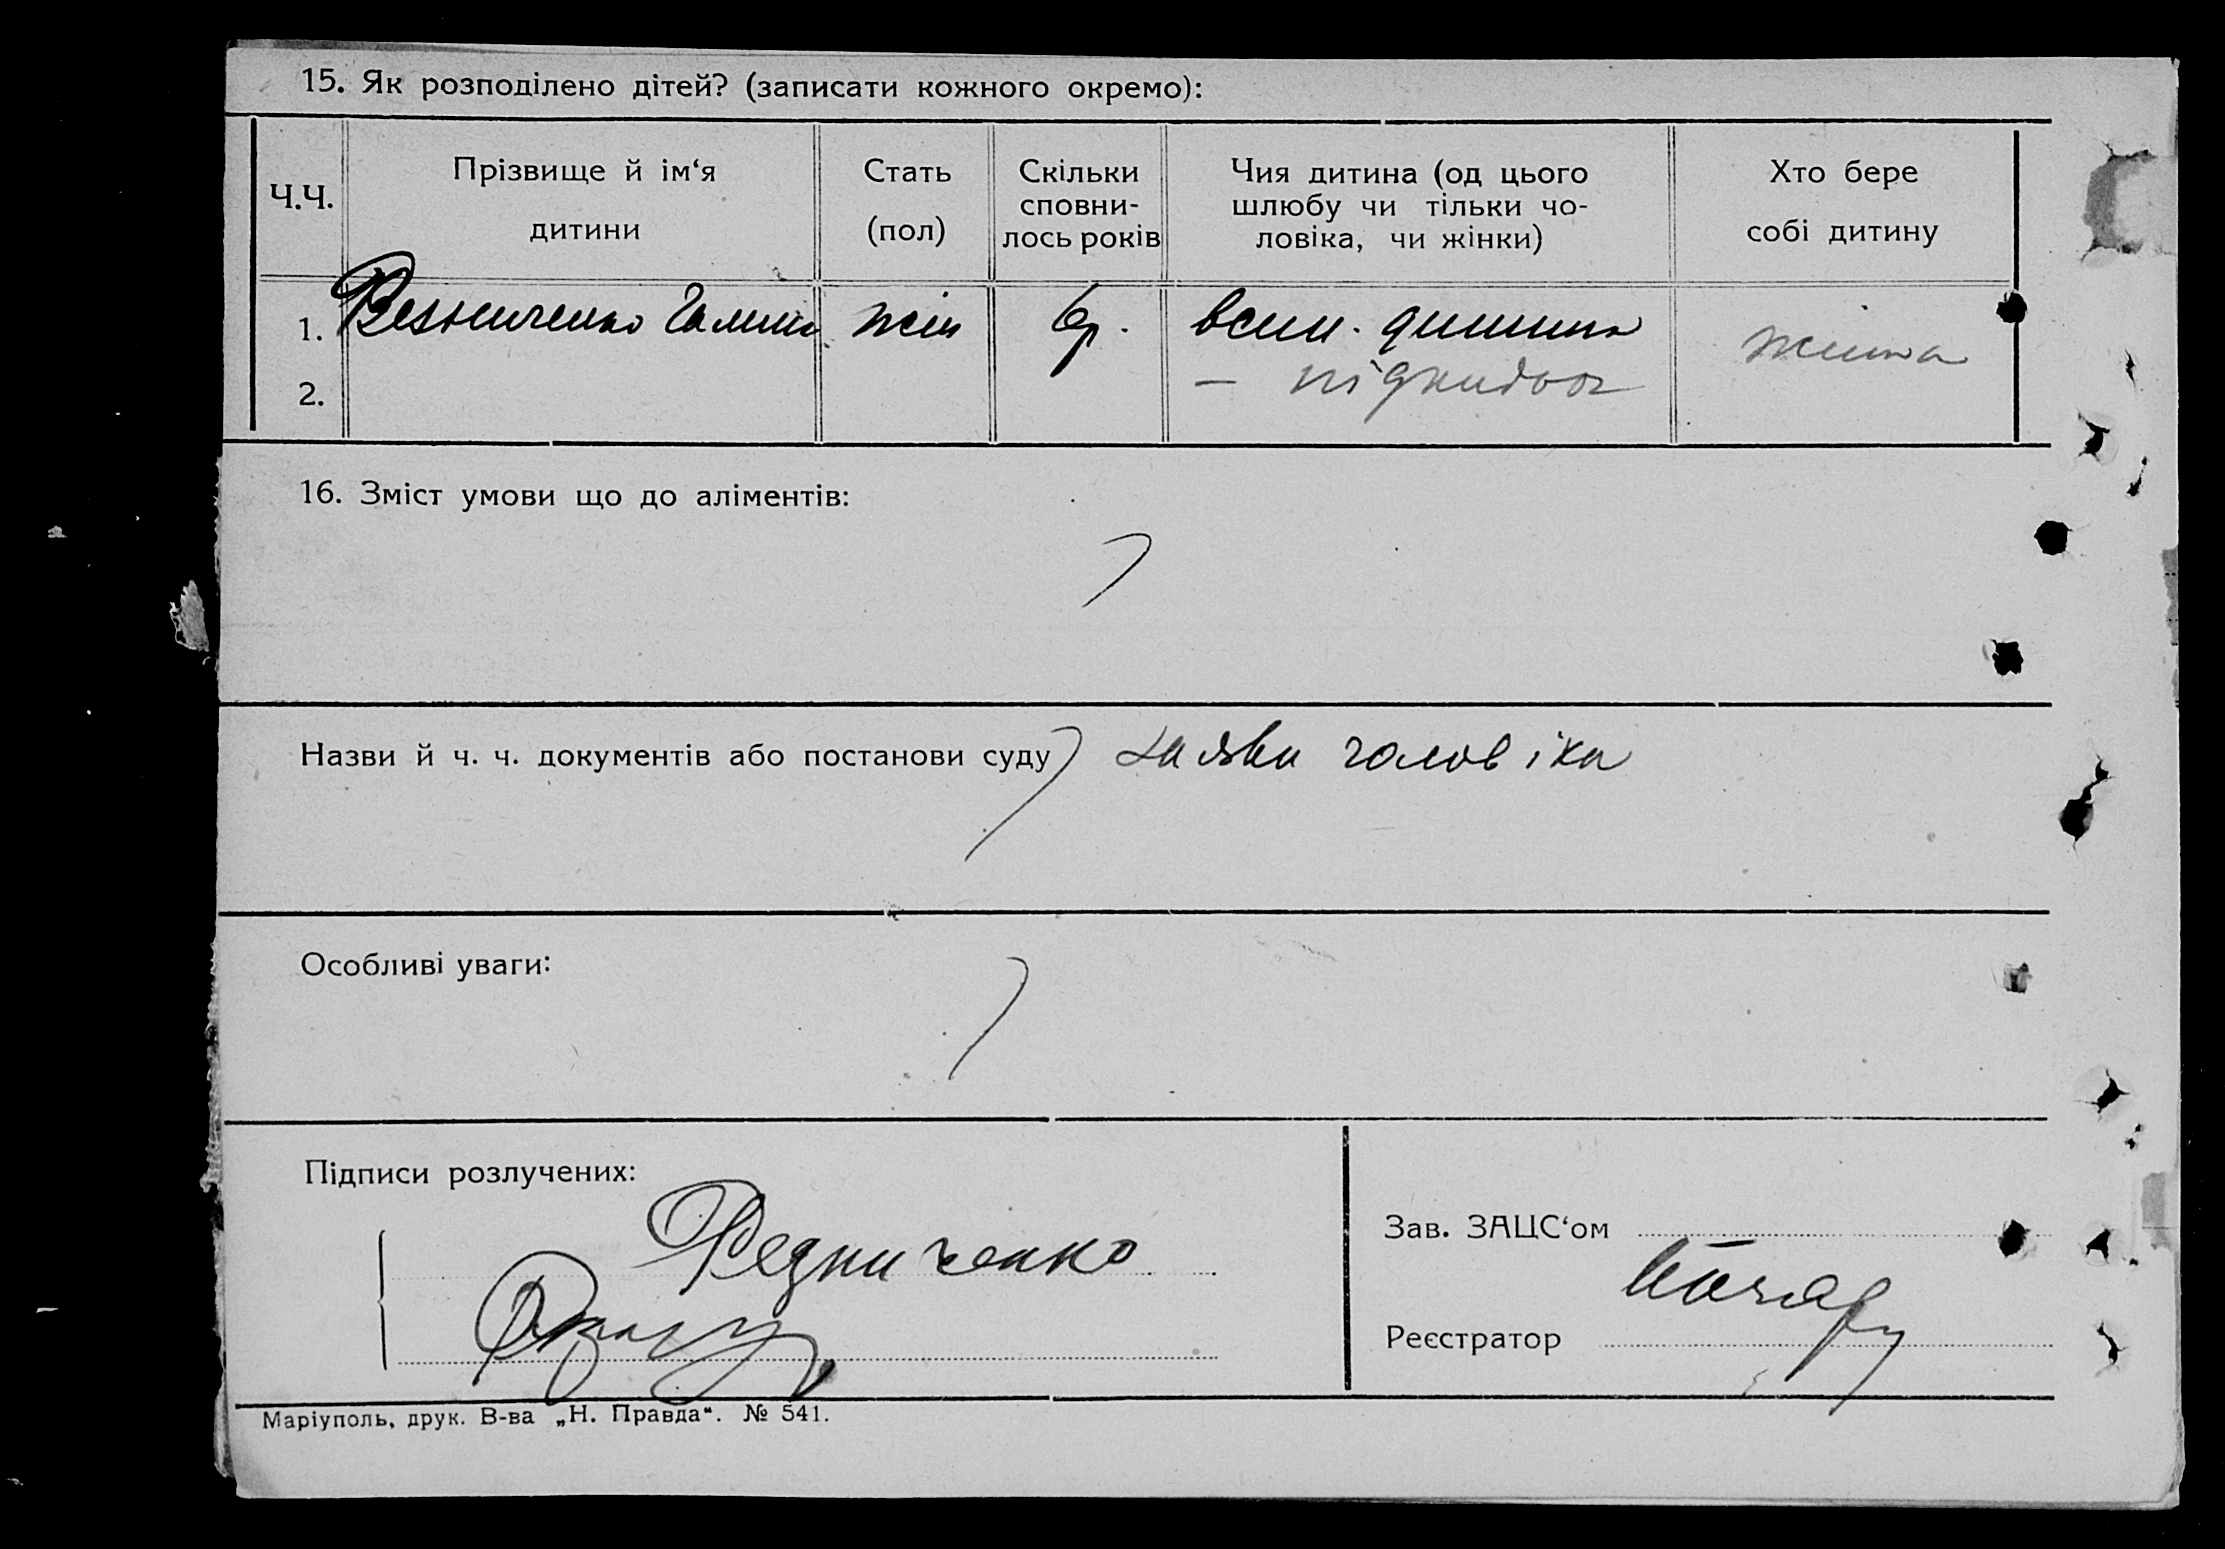 15. Як розподілено дітей? (записати кожного окремо):
Ч.Ч.
Прізвище й ім‘я
дитини
Стать
(пол)
Скільки
сповни-
лось років
Чия дитина (од цього
шлюбу чи тільки чо-
ловіка, чи жінки)
Хто бере
собі дитину
1. Резниченко Галина жін 6р. дитина жінка
— підкидьок
2.
16. Зміст умови що до аліментів:
Назви й ч. ч. документів або постанови суду заява чоловіка
Особливі уваги:
Підписи розлучених:
Резниченко
Зав. ЗАЦС‘ом
Реєстратор
Маріуполь, друк. В-ва „Н. Правда“. № 541.